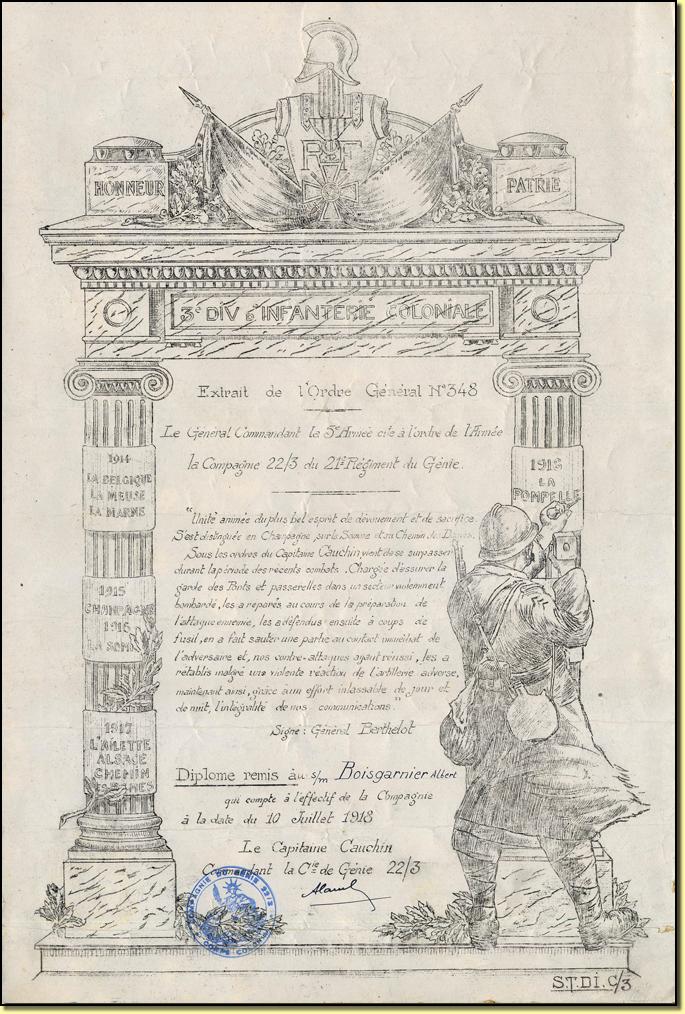 HONNEUR
PATRIE
RF
3e DIV d'INFANTERIE COLONIALE
Extrait de l'Ordre Général No 348
Le Général Commandant la 5e Armée cite à l'ordre de l'Armée
la Compagnie 22/3 du 21e Régiment du Génie.
1914
LA BELGIQUE
LA MEUSE
LA MARNE
1915
CHAMPAGNE
1916
LA SOMME
1917
L'AILETTE
ALSACE
CHEMIN
DAMES
1918
LA
POMPELLE
"Unité animée du plus bel esprit de dévouement et de sacrifice.
S'est distinguée en Champagne, sur la Somme et au Chemin des Dames.
Sous les ordres du Capitaine Cauchin vient de se surpasser
durant la période des récents combats. Chargée d'assurer la
garde des Ponts et passerelles dans un secteur violemment
bombardé, les a réparés au cours de la préparation de
l'attaque ennemie, les a défendus ensuite à coups de
fusil, en a fait sauter une partie au contact immédiat de
l'adversaire et, nos contre-attaques ayant réussi, les a
rétablis malgré une violente réaction de l'artillerie adverse,
maintenant ainsi, grâce à un effort inlassable de jour et
de nuit, l'intégralité de nos communications."
Signé : Général Berthelot
Diplome remis au s/m Boisgarnier Albert
qui compte à l'effectif de la Compagnie
à la date du 10 Juillet 1918
Le Capitaine Cauchin
Commandant la Cie de Génie 22/3
COMPAGNIE DU GENIE 22/3
CORPS COLONIAL
S.T.DI.C/3